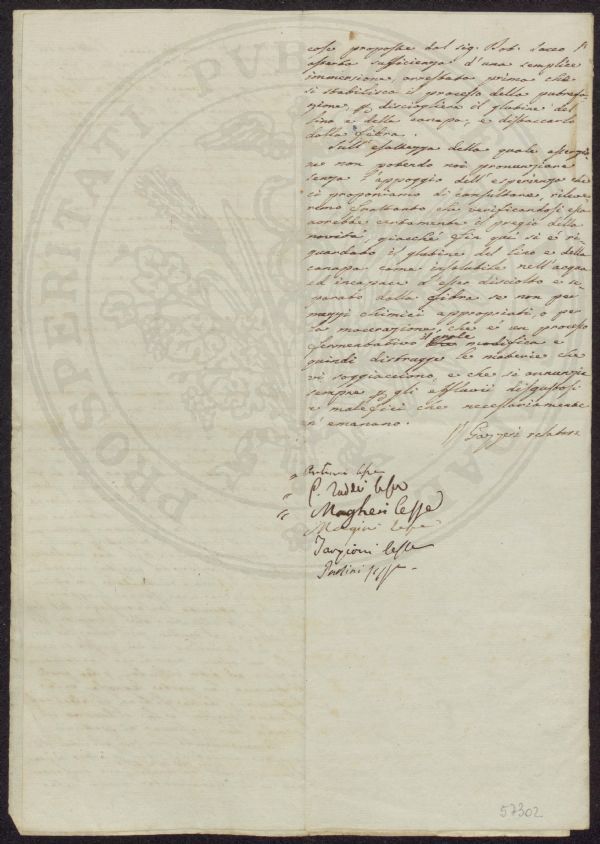 cose proposte dal sig. Dot. Sacco l'
asserta sufficienza d'una semplice
immersione, arrestata prima che
si stabilisca il processo della putrefa-
zione, p. disciogliere il glutine del
lino e della canapa, e distaccarlo
dalla fibra.
Sull'esattezza della quale asserzio-
ne non potendo noi pronunziare
senza l'appoggio dell'esperienza che
ci proponiamo di consultare, rileve-
remo frattanto che verificandosi essa
avrebbe certamente il pregio della
novità, giacché fin qui si è ri-
guardato il glutine del lino e della
canapa come insolubile nell'acqua
ed incapace d'esser disciolto e se-
parato dalla fibra se non per
mezzi chimici appropriati, o per
la macerazione, che è un processo
fermentativo il quale modifica e
quindi distrugge le materie che
vi soggiacciono, e che si annunzia
sempre p. gli effluvii disgustosi
e malefici che necessariamente
n'emanano.
Gazzeri relatore
G. Raddi
Magheri
Targioni
57302
PROSPERITATI PUBLICAE